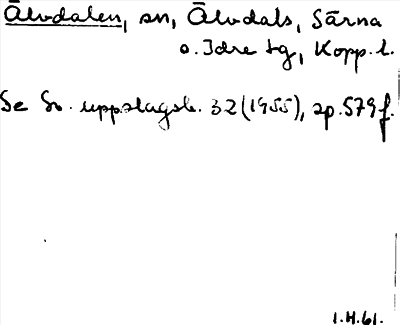 Älvdalen, sn, Älvdals, Särna
o. Idre tg, Kopp. l.
Se Sv. uppslagsb. 32 (1955), sp. 579 f.
1.H.61.